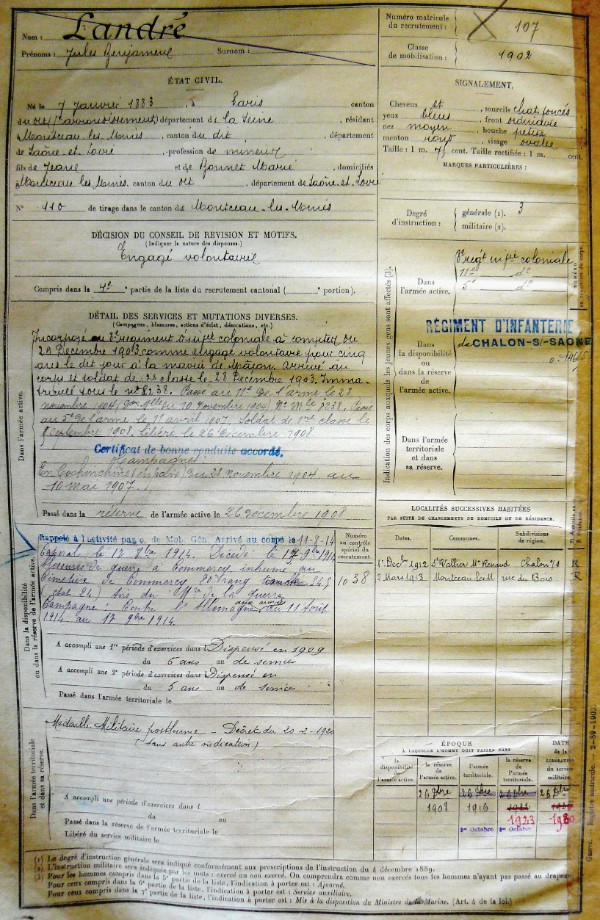 Nom : Landré
Prénoms : Jules Surnom :
Numéro matricule du recrutement : 107
Classe de mobilisation : 1902
ÉTAT CIVIL.
Né le 7 Janvier 1883, à Paris canton
du dit (arrondissement) département de la Seine, résidant
Montceau les Mines, canton du dit, département
de Saône et Loire, profession de mineur
fils de et de Bonnet Marie, domiciliés
Montceau les Mines, canton du dit, département de Saône-et-Loire
N° 110 de tirage dans le canton de Montceau-les-Mines
SIGNALEMENT.
Cheveux et sourcils chat. foncés
yeux bleus front ordinaire
nez moyen bouche petite
menton rond visage ovale
Taille : 1 m. cent. Taille rectifiée : 1 m. cent.
MARQUES PARTICULIÈRES :
Degré d'instruction : générale (1). 3
militaire (2).
DÉCISION DU CONSEIL DE REVISION ET MOTIFS.
(Indiquer la nature des dispenses)
Engagé volontaire
Compris dans la 4e partie de la liste du recrutement cantonal ( portion).
DÉTAIL DES SERVICES ET MUTATIONS DIVERSES.
(Campagnes, blessures, actions d'éclat, décorations, etc.)
Incorporé au régiment d'infie coloniale à compter du
29 Décembre 1903 comme engagé volontaire pour cinq
ans le dit jour à la mairie de Mâcon. Arrivé au
corps et soldat de 2e classe le 28 Décembre 1903. Imma-
triculé sous le n° 8238. Passé au 11e de l'arme le 23
novembre 1904 20 Novembre 1904 Passé
au 5e de l'arme le 1er avril 1907 Soldat de 1ère classe le
1908. Libéré le 26 Décembre 1908
Certificat de bonne conduite accordé.
Campagnes :
En Cochinchine du 21 Novembre 1904 au
10 mai 1907.
Passé dans la réserve de l'armée active le 26 Décembre 1908
Indication des corps auxquels les jeunes gens sont affectés (3).
Dans l'armée active.
régt infie coloniale
11e do
5e do
Dans la disponibilité ou dans la réserve de l'armée active.
RÉGIMENT D'INFANTERIE
de CHALON-S/-SAONE
Dans l'armée territoriale et dans sa réserve.
Dans l'armée active.
Dans la disponibilité ou dans la réserve de l'armée active.
Rappelé à l'activité par o. de Mob. Gén. Arrivé au corps le 11-8-14
Caporal le 12 8bre 1914. Décédé le 17 9bre 1914
de guerre à Commercy inhumé au
Cimetière de Commercy rang tranche 24
avis du Mre de la guerre
Campagne : Contre l'Allemagne aux armées du 11 Août
1914 au 17 9bre 1914
Numéro au contrôle spécial du recrutement.
1038
A accompli une 1re période d'exercices dans Dispensé en 1909
du 5 ans de service
A accompli une 2e période d'exercices dans Dispensé en
du 5 ans de service
Passé dans l'armée territoriale le
LOCALITÉS SUCCESSIVES HABITÉES
PAR SUITE DE CHANGEMENT DE DOMICILE OU DE RÉSIDENCE.
Dates. Communes. Subdivisions de région.
1er Dec 1912 St Vallier Mt Renaud Chalon R
2 Mars 1913 Montceau rue du Bois R
Dans l'armée territoriale et dans sa réserve.
Médaille Militaire posthume - Décret du 20-2-1920
(sans autre indication)
A accompli une période d'exercices dans l
du au
Passé dans la réserve de l'armée territoriale le
Libéré du service militaire le
ÉPOQUE
À LAQUELLE L'HOMME DOIT PASSER DANS
la disponibilité la réserve de l'armée active. l'armée territoriale. la réserve de l'armée territoriale.
DATE DE LA LIBÉRATION du service militaire.
26 Xbre 26 Xbre 26 Xbre 26 Xbre
1908 1916
1923 1930
1er Octobre 1er Octobre
(1) Le degré d'instruction générale sera indiqué conformément aux prescriptions de l'instruction du 4 décembre 1889.
(2) L'instruction militaire sera indiquée par les mots : exercé ou non exercé. On comprendra comme non exercés tous les hommes n'ayant pas passé au drapeau
(3) Pour les hommes compris dans la 5e partie de la liste, l'indication à porter est : Ajourné.
Pour ceux compris dans la 6e partie de la liste, l'indication à porter est : Service auxiliaire.
Pour ceux compris dans la 7e partie de la liste, l'indication à porter est : Mis à la disposition du Ministre de la Marine. (Art. 4 de la loi.)